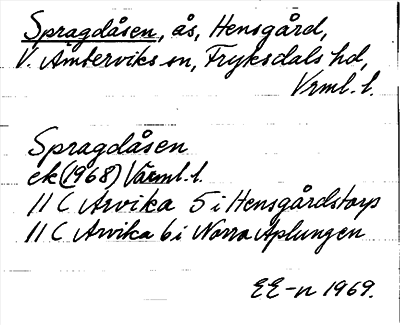 Spragdåsen, ås, Hensgård,
V. Ämterviks sn, Fryksdals hd,
Vrml. l.
Spragdåsen
ek (1968) Värml. l.
11 C Arvika 5 i Hensgårdstorp
11 C Arvika 6 i Norra Aplungen
EE-n 1969.